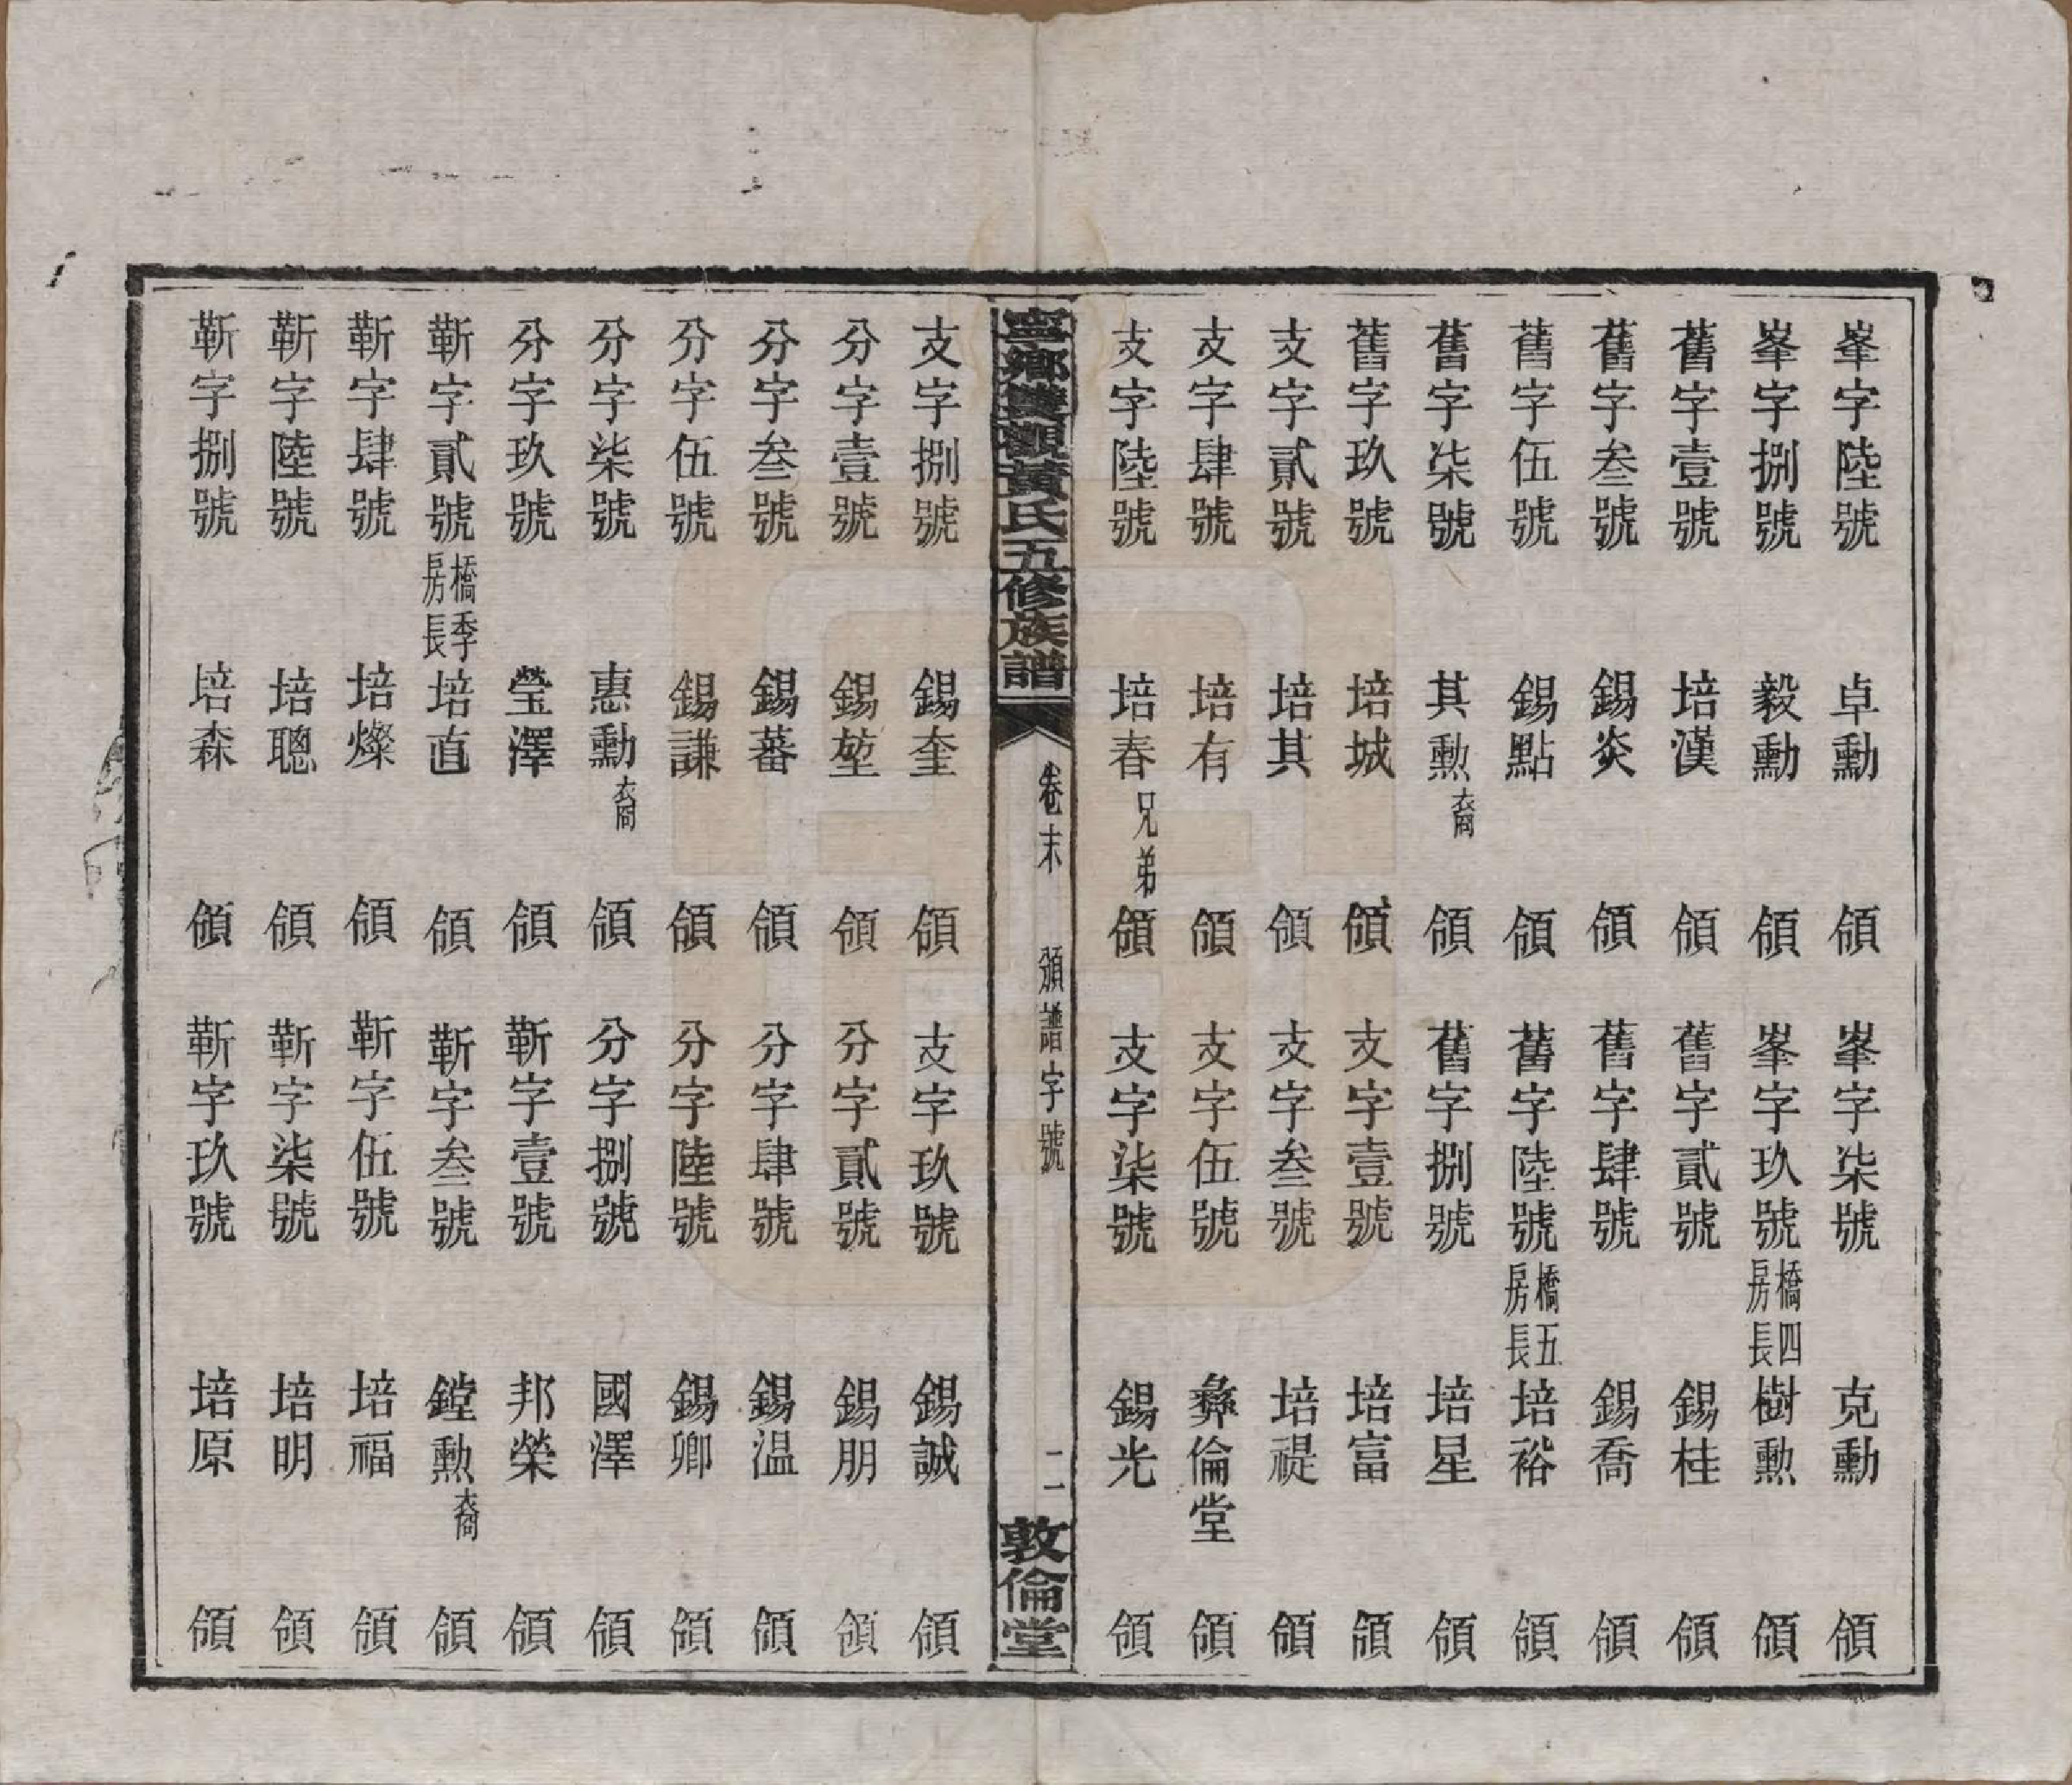 峯字陸號　卓勳　領　峯字柒號　克勳　領
峯字捌號　毅勳　領　峯字玖號橋四房長樹勲　領
舊字壹號　培漢　領　舊字貳號　錫桂　領
舊字叁號　錫炎　領　舊字肆號　錫喬　領
舊字伍號　錫點　領　舊字陸號橋五房長培裕　領
舊字柒號　其勲裔　領　舊字捌號　培星　領
舊字玖號　培城　領　支字壹號　培富　領
支字貳號　培其　領　支字叁號　培禔　領
支字肆號　培有　領　支字伍號　彝倫堂　領
支字陸號　培春兄弟領　支字柒號　錫光　領
寧鄉雙觀黃氏五修族譜　卷末　頒譜字號　二　敦倫堂
支字捌號　錫奎　領　支字玖號　錫誠　領
分字壹號　錫堃　領　分字貳號　錫朋　領
分字叁號　錫蕃　領　分字肆號　錫温　領
分字伍號　錫謙　領　分字陸號　錫卿　領
分字柒號　惠勳裔　領　分字捌號　國澤　領
分字玖號　瑩澤　領　靳字壹號　邦榮　領
靳字貳號橋季房長培直　領　靳字叁號　鏜勲裔　領
靳字肆號　培燦　領　靳字伍號　培福　領
靳字陸號　培聰　領　靳字柒號　培明　領
靳字捌號　培森　領　靳字玖號　培原　領